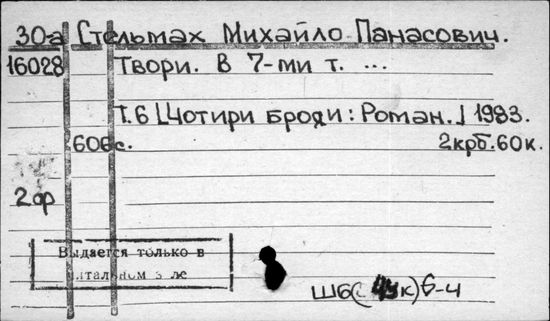 30-а Стельмах Михайло Панасович.
16028 Твори. В 7-ми т. ...
Т.6 [Чотири броди: Роман.] 1983.
606с. 2крб.60к.
2 ор
Выдается только в
читальном з ле
Ш6( 4Ук)6-4